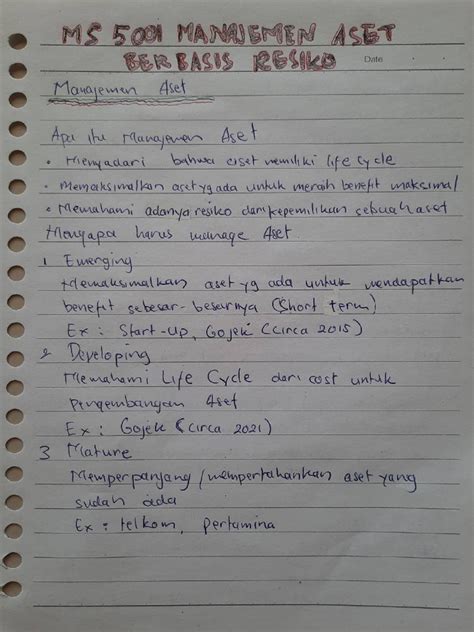 MS 5001 MANAJEMEN ASET
BERBASIS RESIKO
Date
Manajemen Aset
Apa itu Manajemen Aset
• Menyadari bahwa aset memiliki life cycle
• Memaksimalkan aset yg ada untuk meraih benefit maksimal
• Memahami adanya resiko dari kepemilikan sebuah aset
Mengapa harus manage Aset
1 Emerging
Memaksimalkan aset yg ada untuk mendapatkan
benefit sebesar-besarnya (Short term)
Ex : Start-Up, Gojek (Circa 2015)
2 Developing
Memahami Life Cycle dari cost untuk
Pengembangan Aset
Ex : Gojek (Circa 2021)
3 Mature
Memperpanjang/mempertahankan aset yang
sudah ada
Ex : telkom, Pertamina